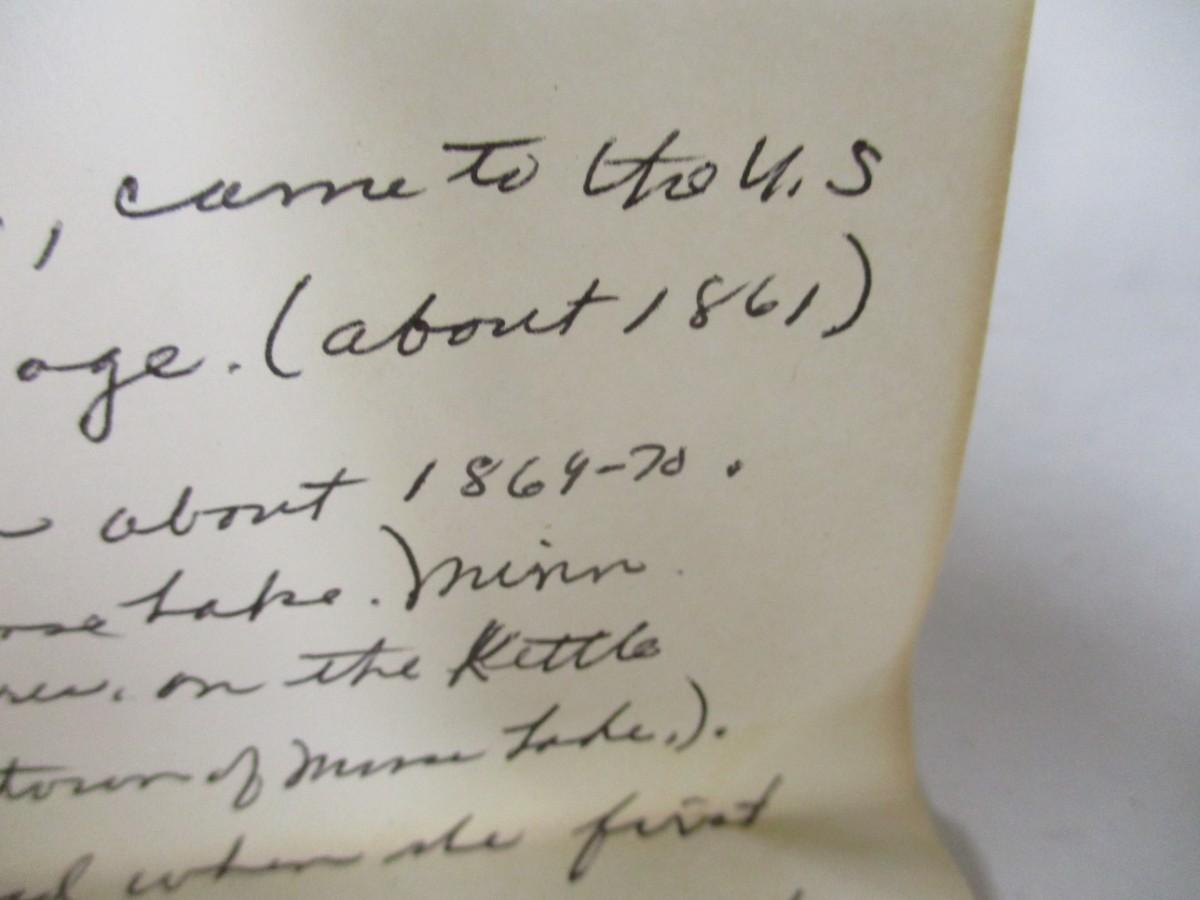 , came to the U.S
age. (about 1861)
about 1869-70.
Lake. Minn.
on the Kettle
town of Moose Lake.).
when she first